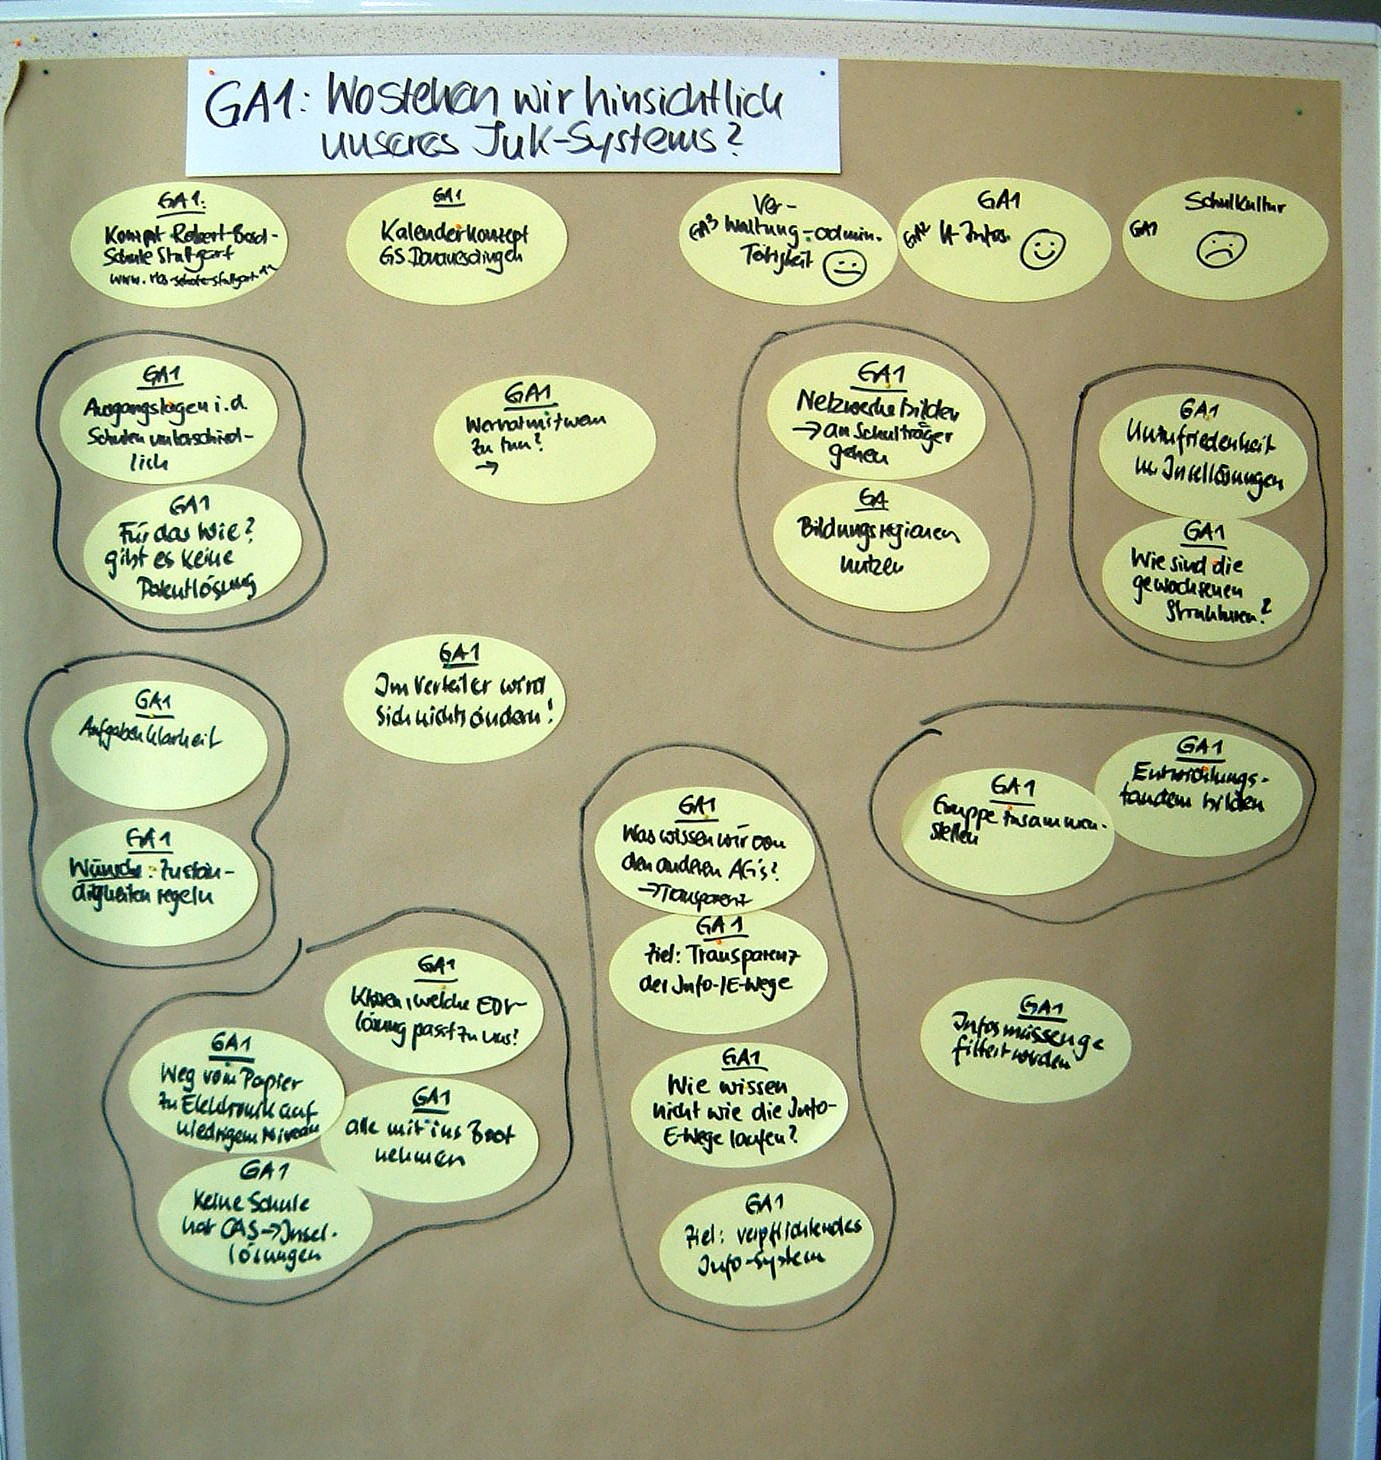 GA1: Wo stehen wir hinsichtlich
unseres IuK-Systems?
GA1:
Konzept Robert-Bosch-
Schule Stuttgart
GA1
Kalenderkonzept
GS Donaueschingen
Ver-
GA3 waltung-admin.
Tätigkeit
GA1
GA2 U-Infos
Schulkultur
GA1
GA1
Ausgangslagen i.d.
Schulen unterschied-
lich
GA1
Für das Wie?
gibt es keine
Patentlösung
GA1
Wer hat mit wem
zu tun?
→
GA1
Netzwerke bilden
→ an Schulträger
gehen
GA
Bildungsregionen
nutzen
GA1
Unzufriedenheit
m. Insellösungen
GA1
Wie sind die
gewachsenen
Strukturen?
GA1
Im Verteiler wird
sich nichts ändern!
GA1
Aufgabenklarheit
GA1
Wünsche: Zustän-
digkeiten regeln
GA1
Gruppe zusammen-
stellen
GA1
Entwicklungs-
tandem bilden
GA1
Was wissen wir von
den anderen AG's?
→ Transparenz
GA1
Ziel: Transparenz
der Info-/E-Wege
GA1
Wie wissen
nicht wie die Info-
E-Wege laufen?
GA1
Ziel: verpflichtendes
Info-System
GA1
Klären, welche EDV-
lösung passt zu uns?
GA1
Weg vom Papier
zu Elektronik auf
niedrigem Niveau
GA1
alle mit ins Boot
nehmen
GA1
Keine Schule
hat CAS → Insel-
lösungen
GA1
Infos müssen ge
filtert werden